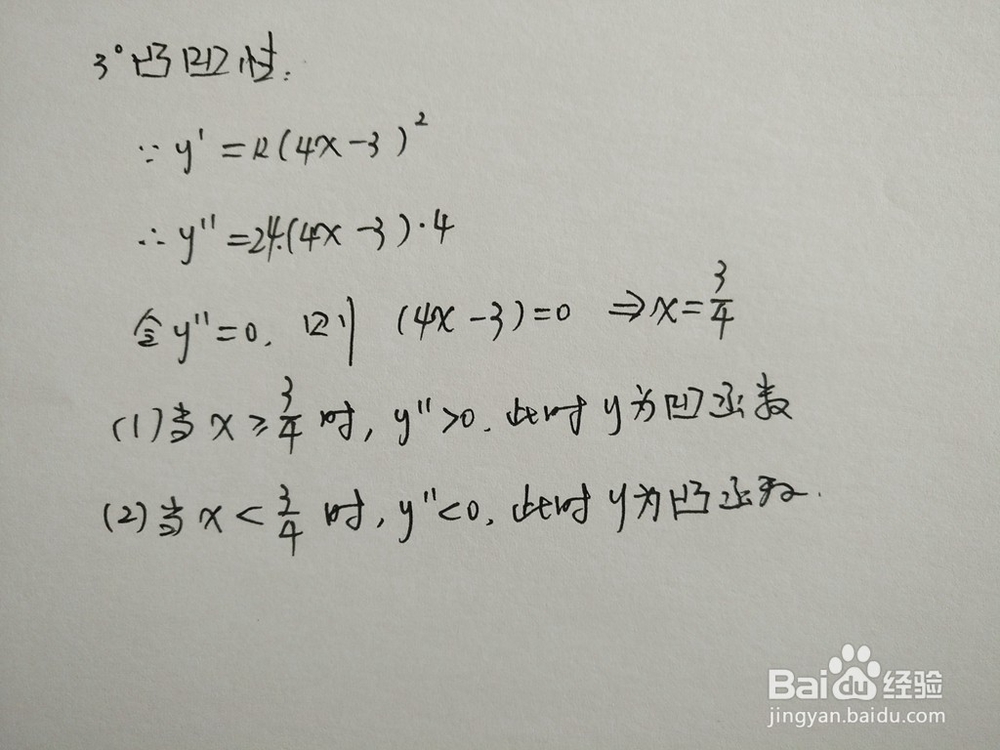 3°凸凹性:
∵ y' = 12(4x-3)²
∴ y'' = 24(4x-3)·4
令y''=0, 则 (4x-3)=0 ⇒ x=3/4
(1)当 x ≥ 3/4 时, y''>0, 此时 y为凹函数
(2)当 x < 3/4 时, y''<0, 此时 y为凸函数.
Baidu经验
jingyan.baidu.com